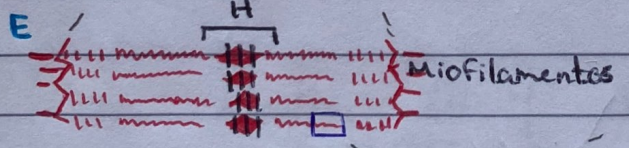 H
E
Miofilamentos